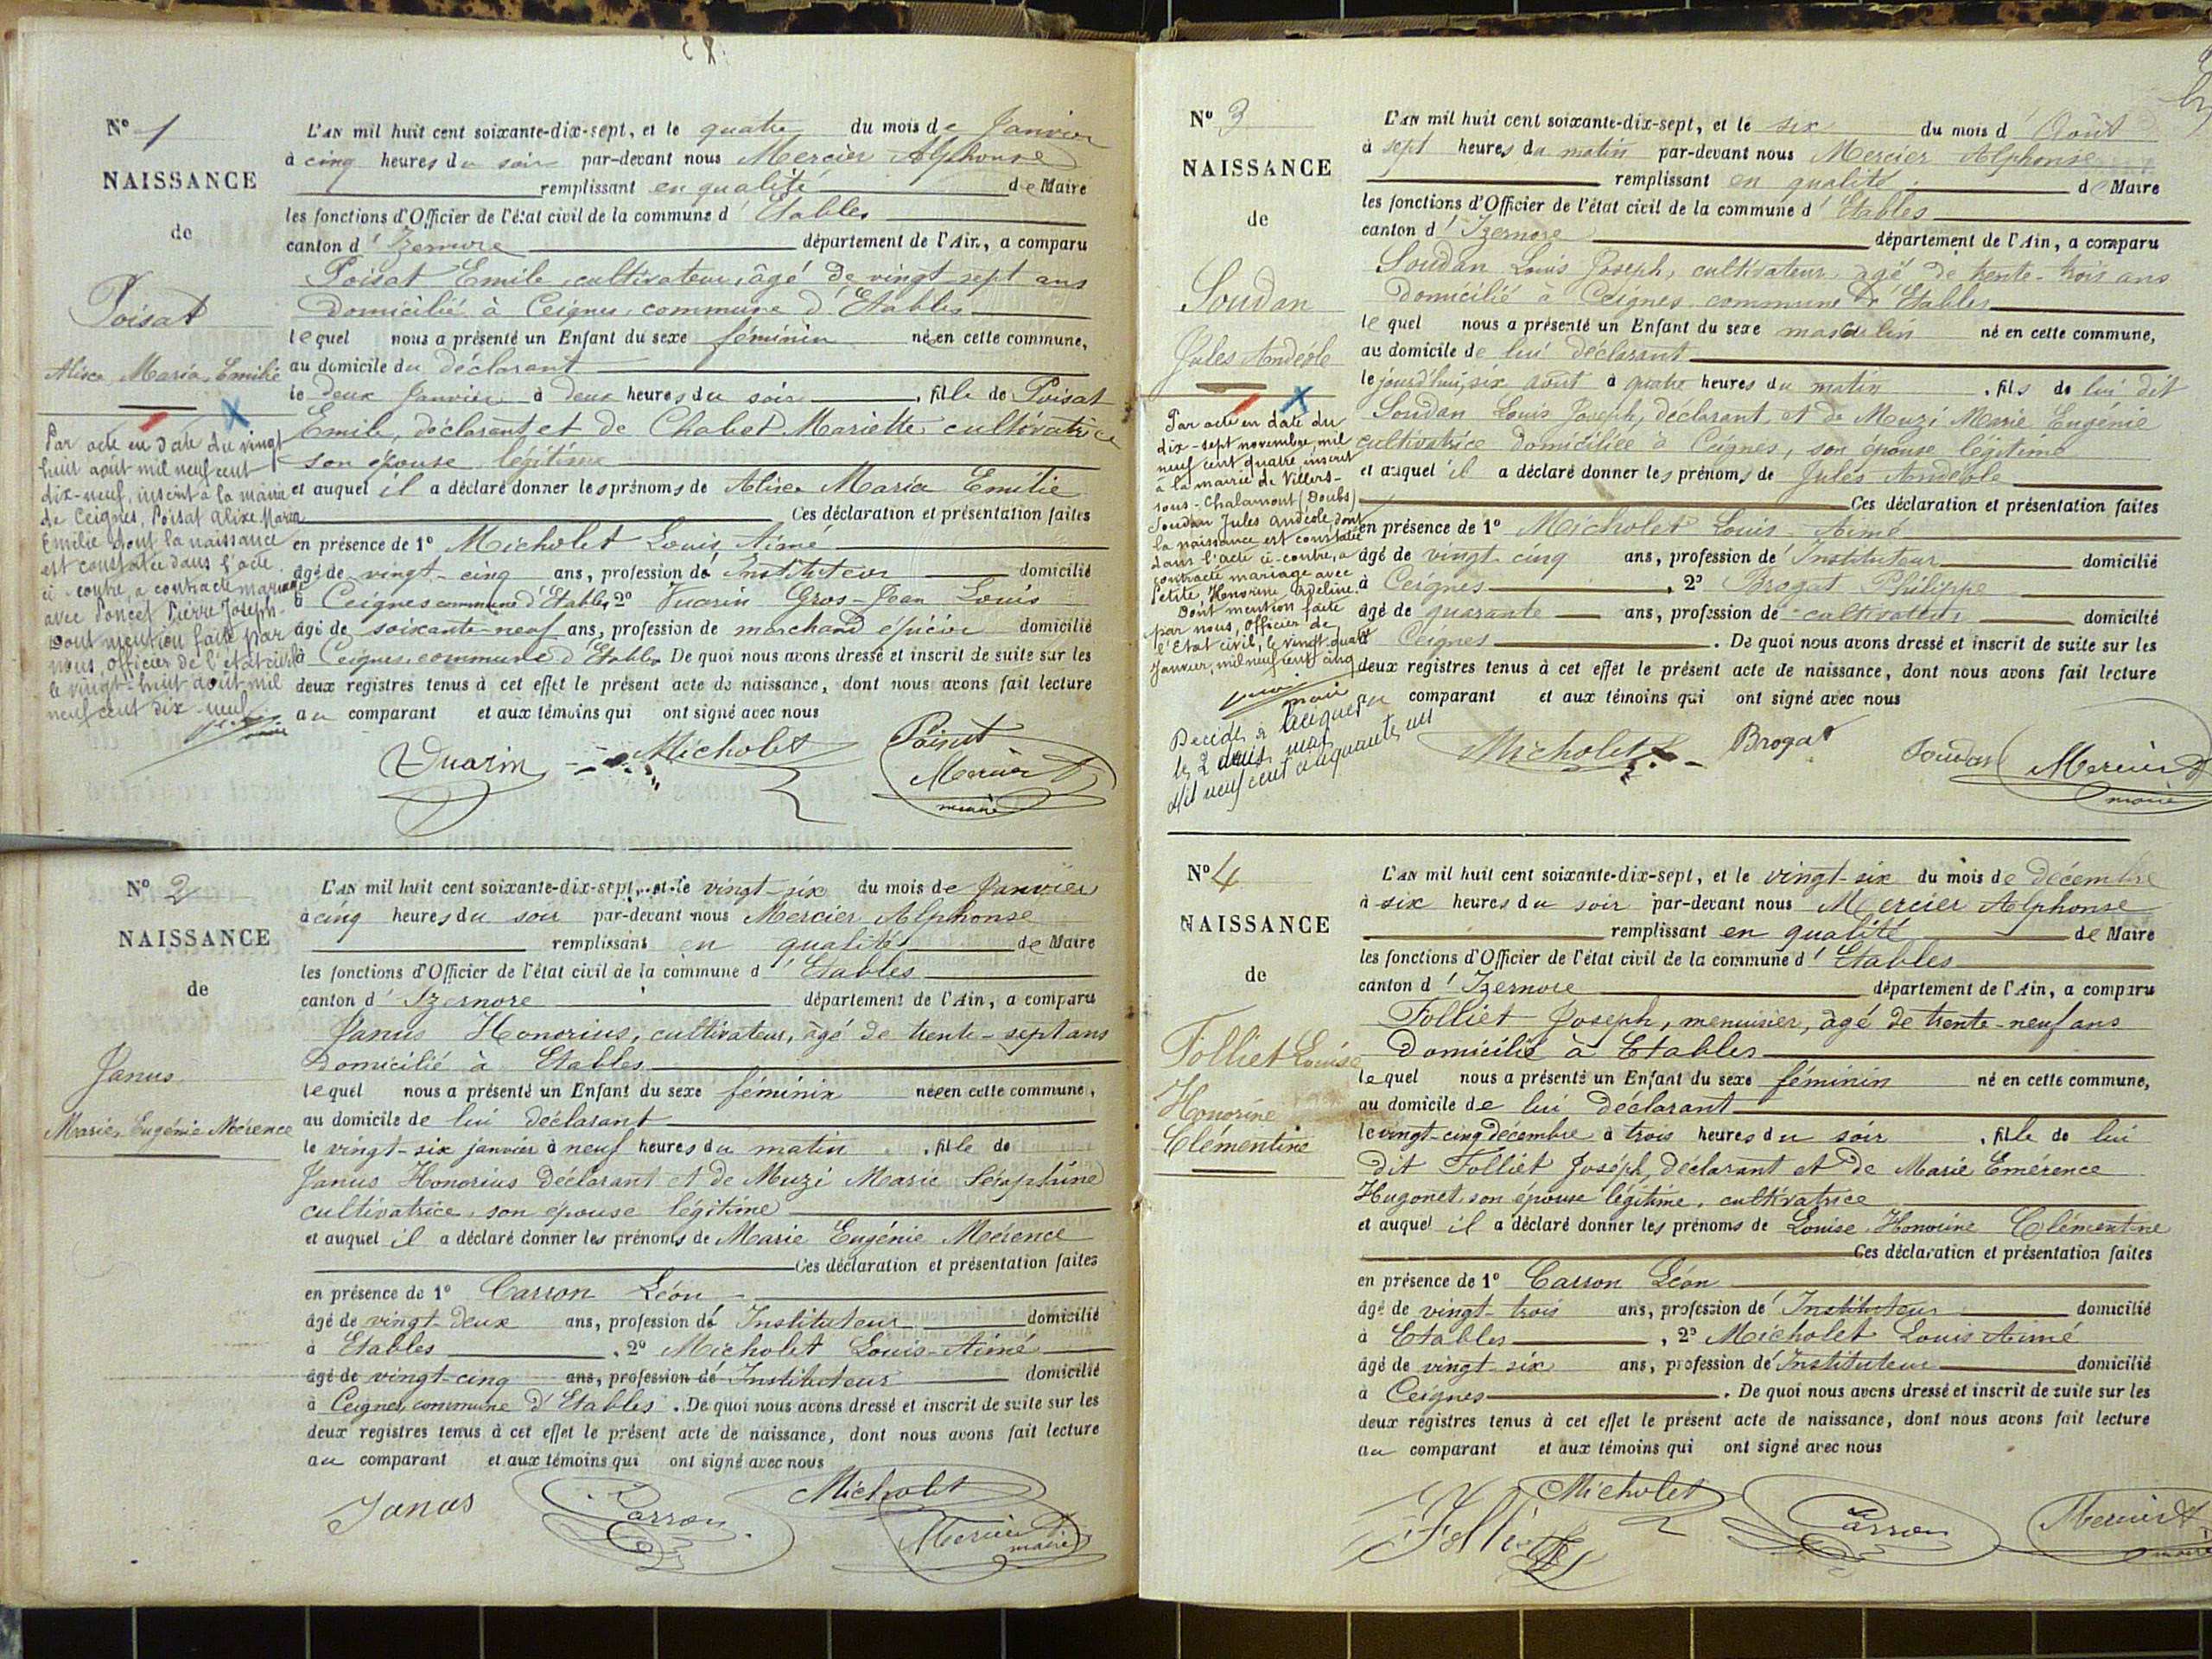 N° 1
NAISSANCE
de
Poisat
Alixe Maria Emilie
Par acte en date du vingt
huit août mil neuf cent
dix-neuf, inscrit à la mairie
de Ceignes, Poisat Alixe Maria
Emilie dont la naissance
est constatée dans l'acte
ci-contre, a contracté mariage
avec Poncet Pierre Joseph.
Dont mention faite par
nous officier de l'état civil
le vingt-huit août mil
neuf cent dix-neuf
L'AN mil huit cent soixante-dix-sept, et le quatre du mois de Janvier
à cinq heures du soir par-devant nous Mercier Alphonse
remplissant en qualité de Maire
les fonctions d'Officier de l'état civil de la commune d'Etables
canton d'Izernore département de l'Ain, a comparu
Poisat Emile, cultivateur, âgé de vingt-sept ans
domicilié à Ceignes, commune d'Etables
lequel nous a présenté un Enfant du sexe féminin née en cette commune,
au domicile du déclarant
le deux Janvier à deux heures du soir, fille de Poisat
Emile, déclarant et de Chabet Mariette cultivatrice
son épouse légitime
et auquel il a déclaré donner les prénoms de Alixe Maria Emilie
Ces déclaration et présentation faites
en présence de 1° Micholet Louis Aimé
âgé de vingt-cinq ans, profession d'Instituteur domicilié
à Ceignes commune d'Etables 2° Vuarin Gros-Jean Louis
âgé de soixante-neuf ans, profession de marchand épicier domicilié
à Ceignes, commune d'Etables De quoi nous avons dressé et inscrit de suite sur les
deux registres tenus à cet effet le présent acte de naissance, dont nous avons fait lecture
au comparant et aux témoins qui ont signé avec nous
Vuarin Micholet Poisat
Mercier A
maire
N° 2
NAISSANCE
de
Janus
Marie Eugénie Mérence
L'AN mil huit cent soixante-dix-sept, et le vingt-six du mois de Janvier
à cinq heures du soir par-devant nous Mercier Alphonse
remplissant en qualité de Maire
les fonctions d'Officier de l'état civil de la commune d'Etables
canton d'Izernore département de l'Ain, a comparu
Janus Honorius, cultivateur, âgé de trente-sept ans
domicilié à Etables
lequel nous a présenté un Enfant du sexe féminin née en cette commune,
au domicile de lui déclarant
le vingt-six janvier à neuf heures du matin, fille de
Janus Honorius déclarant et de Muzi Marie Séraphine
cultivatrice, son épouse légitime
et auquel il a déclaré donner les prénoms de Marie Eugénie Mérence
Ces déclaration et présentation faites
en présence de 1° Carron Léon
âgé de vingt-deux ans, profession d'Instituteur domicilié
à Etables, 2° Micholet Louis-Aimé
âgé de vingt-cinq ans, profession d'Instituteur domicilié
à Ceignes, commune d'Etables. De quoi nous avons dressé et inscrit de suite sur les
deux registres tenus à cet effet le présent acte de naissance, dont nous avons fait lecture
au comparant et aux témoins qui ont signé avec nous
Janus Carron Micholet
Mercier A
maire
N° 3
NAISSANCE
de
Soudan
Jules Andéole
Par acte en date du
dix-sept novembre mil
neuf cent quatre inscrit
à la mairie de Villers-
sous-Chalamont (Doubs)
Soudan Jules Andéole, dont
la naissance est constatée
dans l'acte ci-contre, a
contracté mariage avec
Petite Honorine Adeline.
Dont mention faite
par nous, Officier de
l'Etat civil, le vingt-quatre
Janvier, mil neuf cent cinq
maire
Décédé à
le 2 mai
Mil neuf cent cinquante un
L'AN mil huit cent soixante-dix-sept, et le six du mois d'Août
à sept heures du matin par-devant nous Mercier Alphonse
remplissant en qualité de Maire
les fonctions d'Officier de l'état civil de la commune d'Etables
canton d'Izernore département de l'Ain, a comparu
Soudan Louis Joseph, cultivateur, âgé de trente-trois ans
domicilié à Ceignes commune d'Etables
lequel nous a présenté un Enfant du sexe masculin né en cette commune,
au domicile de lui déclarant
le jourd'hui, six août à quatre heures du matin, fils de lui dit
Soudan Louis Joseph, déclarant, et de Muzi Marie Eugénie
cultivatrice domiciliée à Ceignes, son épouse légitime
et auquel il a déclaré donner les prénoms de Jules Andéole
Ces déclaration et présentation faites
en présence de 1° Micholet Louis-Aimé
âgé de vingt-cinq ans, profession d'Instituteur domicilié
à Ceignes, 2° Brogat Philippe
âgé de quarante ans, profession de cultivateur domicilié
à Ceignes. De quoi nous avons dressé et inscrit de suite sur les
deux registres tenus à cet effet le présent acte de naissance, dont nous avons fait lecture
au comparant et aux témoins qui ont signé avec nous
Micholet Brogat Soudan Mercier A
maire
N° 4
NAISSANCE
de
Folliet Louise
Honorine
Clémentine
L'AN mil huit cent soixante-dix-sept, et le vingt-six du mois de décembre
à six heures du soir par-devant nous Mercier Alphonse
remplissant en qualité de Maire
les fonctions d'Officier de l'état civil de la commune d'Etables
canton d'Izernore département de l'Ain, a comparu
Folliet Joseph, menuisier, âgé de trente-neuf ans
domicilié à Etables
lequel nous a présenté un Enfant du sexe féminin né en cette commune,
au domicile de lui déclarant
le vingt-cinq décembre à trois heures du soir, fille de lui
dit Folliet Joseph, déclarant et de Marie Emérence
Hugonet, son épouse légitime, cultivatrice
et auquel il a déclaré donner les prénoms de Louise Honorine Clémentine
Ces déclaration et présentation faites
en présence de 1° Carron Léon
âgé de vingt-trois ans, profession d'Instituteur domicilié
à Etables, 2° Micholet Louis Aimé
âgé de vingt-six ans, profession d'Instituteur domicilié
à Ceignes. De quoi nous avons dressé et inscrit de suite sur les
deux registres tenus à cet effet le présent acte de naissance, dont nous avons fait lecture
au comparant et aux témoins qui ont signé avec nous
Folliet Micholet Carron Mercier A
maire